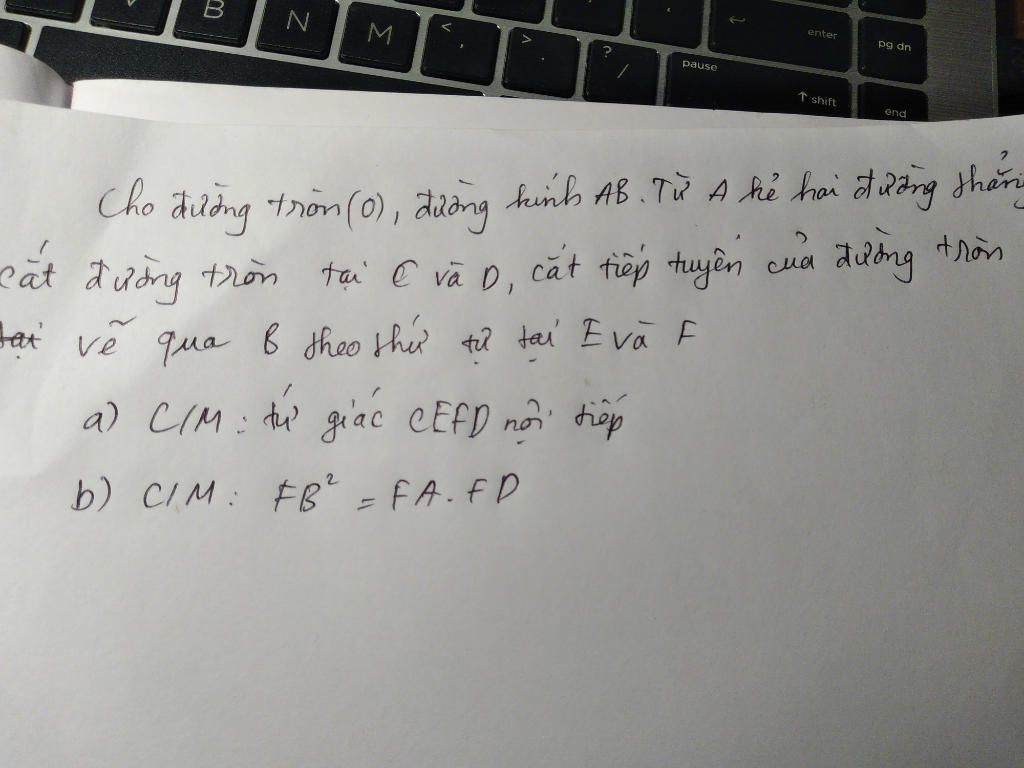 B
N
M
<
,
>
.
?
/
enter
pg dn
pause
↑ shift
end
Cho đường tròn (O), đường kính AB. Từ A kẻ hai đường thẳng
cắt đường tròn tại C và D, cắt tiếp tuyến của đường tròn
tại vẽ qua B theo thứ tự tại E và F
a) C/M: tứ giác CEFD nội tiếp
b) C/M: FB² = FA.FD